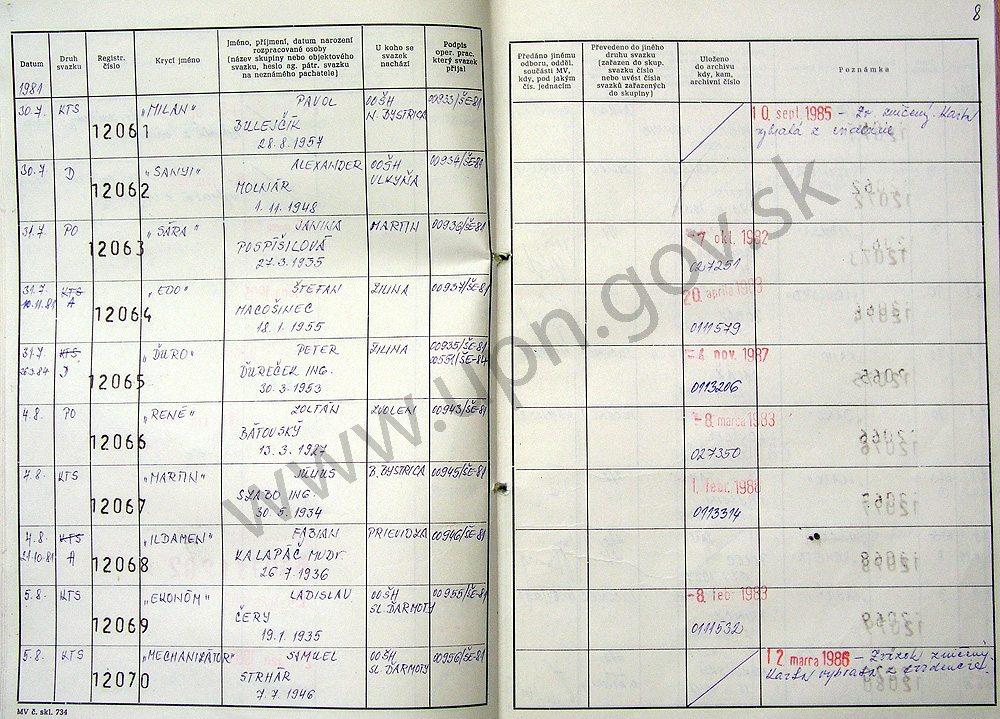 8
Datum
Druh svazku
Registr. číslo
Krycí jméno
Jméno, příjmení, datum narození
rozpracované osoby
(název skupiny nebo objektového
svazku, heslo ag. pátr. svazku
na neznámého pachatele)
U koho se
svazek
nachází
Podpis
oper. prac.
který svazek
přijal
Předáno jinému
odboru, odděl.
součásti MV,
kdy, pod jakým
čís. jednacím
Převedeno do jiného
druhu svazku
(zařazen do skup.
svazku číslo
nebo uvést čísla
svazků zařazených
do skupiny)
Uloženo
do archivu
kdy, kam,
archivní číslo
Poznámka
1981
30.7. KTS 12061 „MILAN" PAVOL
BULEJČÍK
28.8.1957
OOŠH
N. BYSTRICA
00933/ŠE-81
10. sept. 1985 - Zv. zničený. Karta
vybratá z evidencie
30.7 D 12062 „SANYI" ALEXANDER
MOLNÁR
1.11.1948
OOŠH
00934/ŠE-81
31.7. PO 12063 „SÁRA" JANINA
POSPÍŠILOVÁ
27.3.1935
MARTIN
00936/ŠE-81
-7. okt. 1982
027251
31.7. KTS
10.11.81 A
12064 „EDO" ŠTEFAN
MACOŠINEC
18.1.1955
ŽILINA
00937/ŠE-81
20. apríla 1983
0111579
31.7. KTS
26.3.84 D
12065 „ĎURO" PETER
ĎUREČEK ING.
30.3.1953
ŽILINA
00935/ŠE-81
00551/ŠE-84
-4. nov. 1987
0113206
4.8. PO 12066 „RENÉ" ZOLTÁN
BÁTOVSKÝ
13.3.1927
ZVOLEN
00943/ŠE-81
-8. marca 1983
027350
4.8. KTS 12067 „MARTIN" JÚLIUS
SZABO ING.
30.5.1934
B. BYSTRICA
00945/ŠE-81
1. febr. 1988
0113314
4.8. KTS
21.10.81 A
12068 „ILDAMEN" FABIAN
KALAPÁČ MUDr
26.7.1936
PRIEVIDZA
00946/ŠE-81
5.8. KTS 12069 „EKONÓM" LADISLAV
ČERY
19.1.1935
OOŠH
SL. ĎARMOTY
00955/ŠE-81
-8. feb. 1983
0111532
5.8. KTS 12070 „MECHANIZÁTOR" SAMUEL
STRHÁR
7.7.1946
OOŠH
SL. ĎARMOTY
00956/ŠE-81
12. marca 1986 - Zväzok zničený.
Karta vybratá z evidencie.
MV č. skl. 734
www.upn.gov.sk